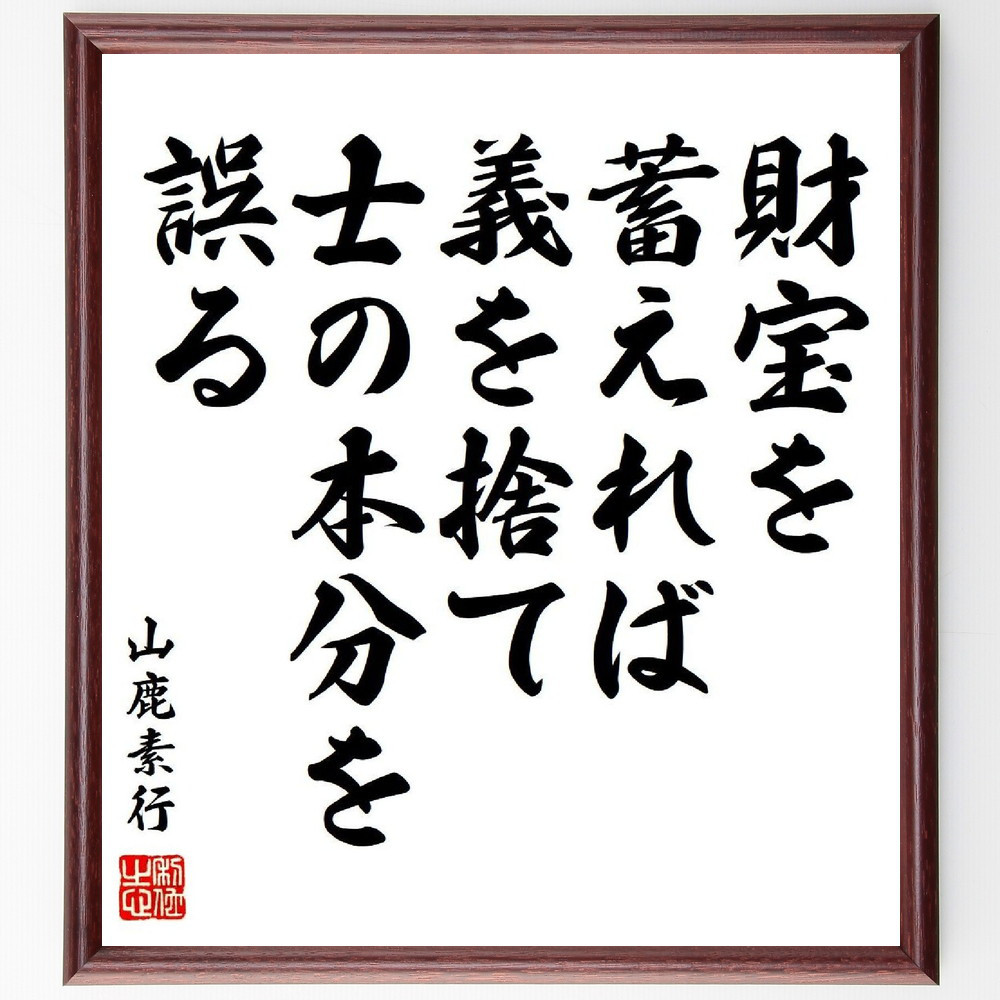 財宝を
蓄えれば
義を捨て
士の本分を
誤る
山鹿素行